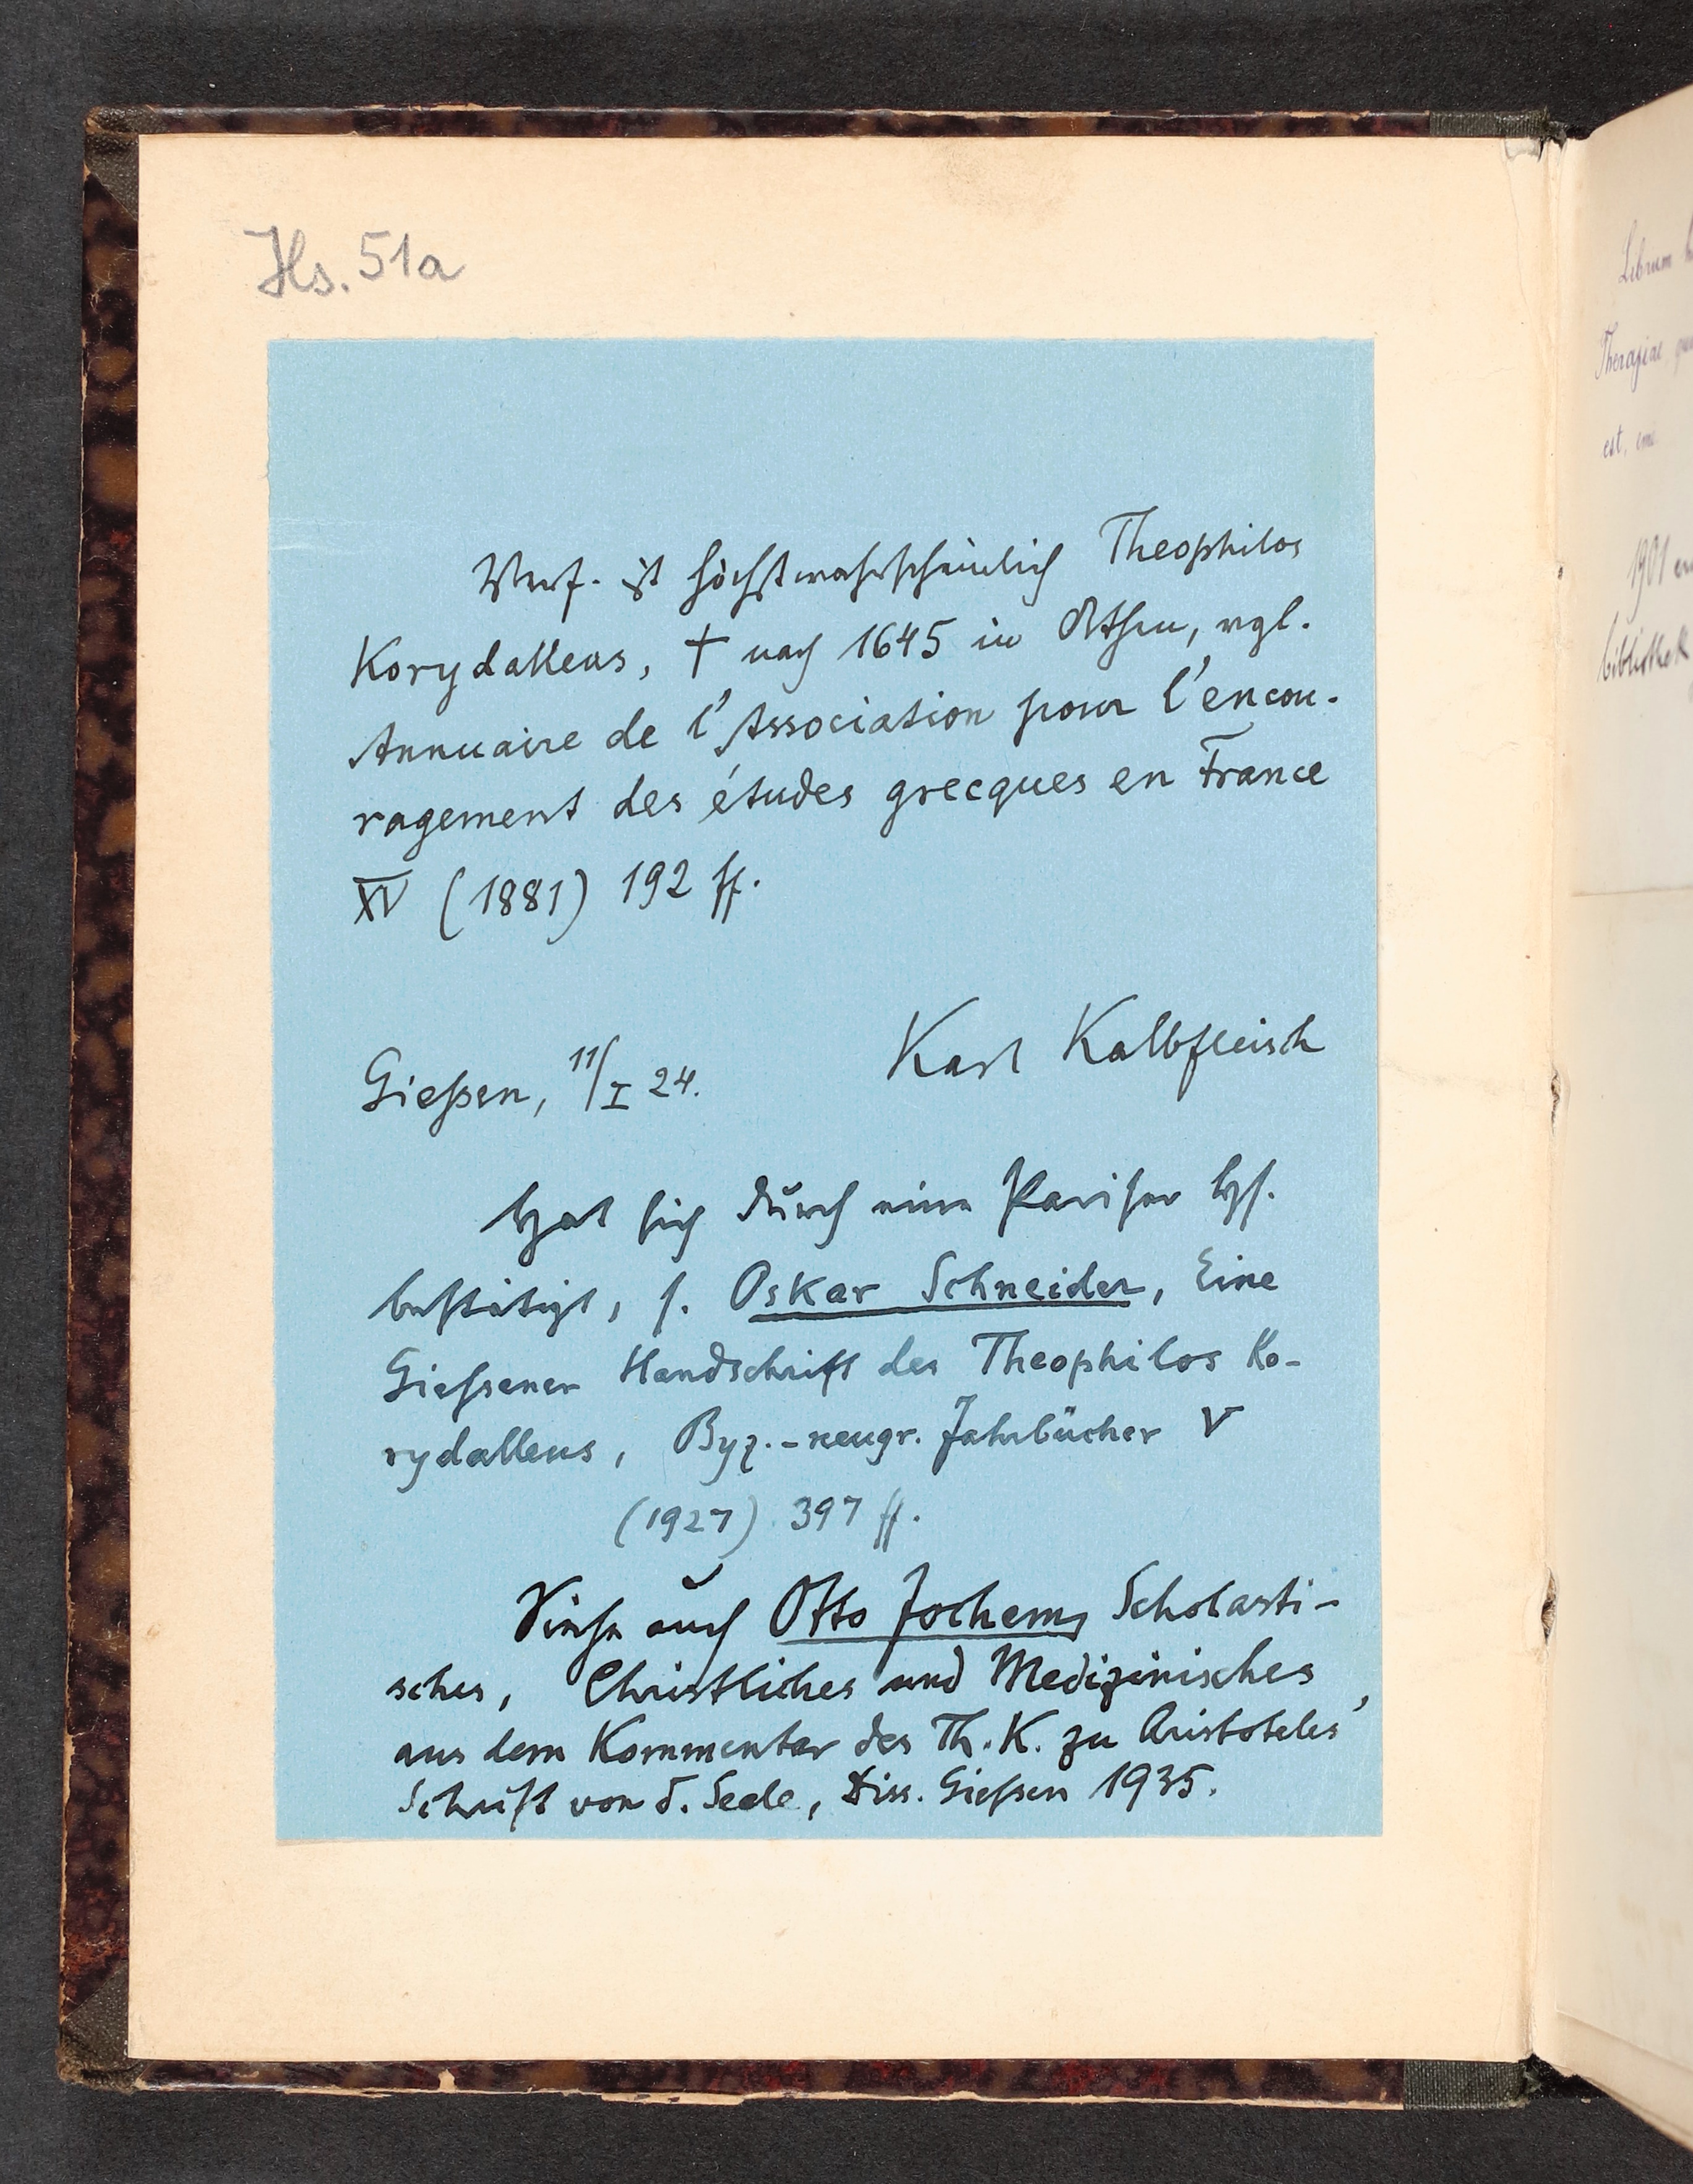 Hs. 51a
Verf. ist höchstwahrscheinlich Theophilos
Korydalleus, † nach 1645 in Athen, vgl.
Annuaire de l'Association pour l'encou-
ragement des études grecques en France
XV (1881) 192 ff.
Karl Kalbfleisch
Gießen, 11/I 24.
Hat sich durch eine Pariser Hs.
bestätigt, s. Oskar Schneider, Eine
Giessener Handschrift des Theophilos Ko-
rydalleus, Byz.-neugr. Jahrbücher V
(1927) 397 ff.
Siehe auch Otto Jochem, Scholasti-
sches, Christliches und Medizinisches
aus dem Kommentar des Th. K. zu Aristoteles'
Schrift von d. Seele, Diss. Giessen 1935.
Librum
Therapiae
est,
1901
bibliothek